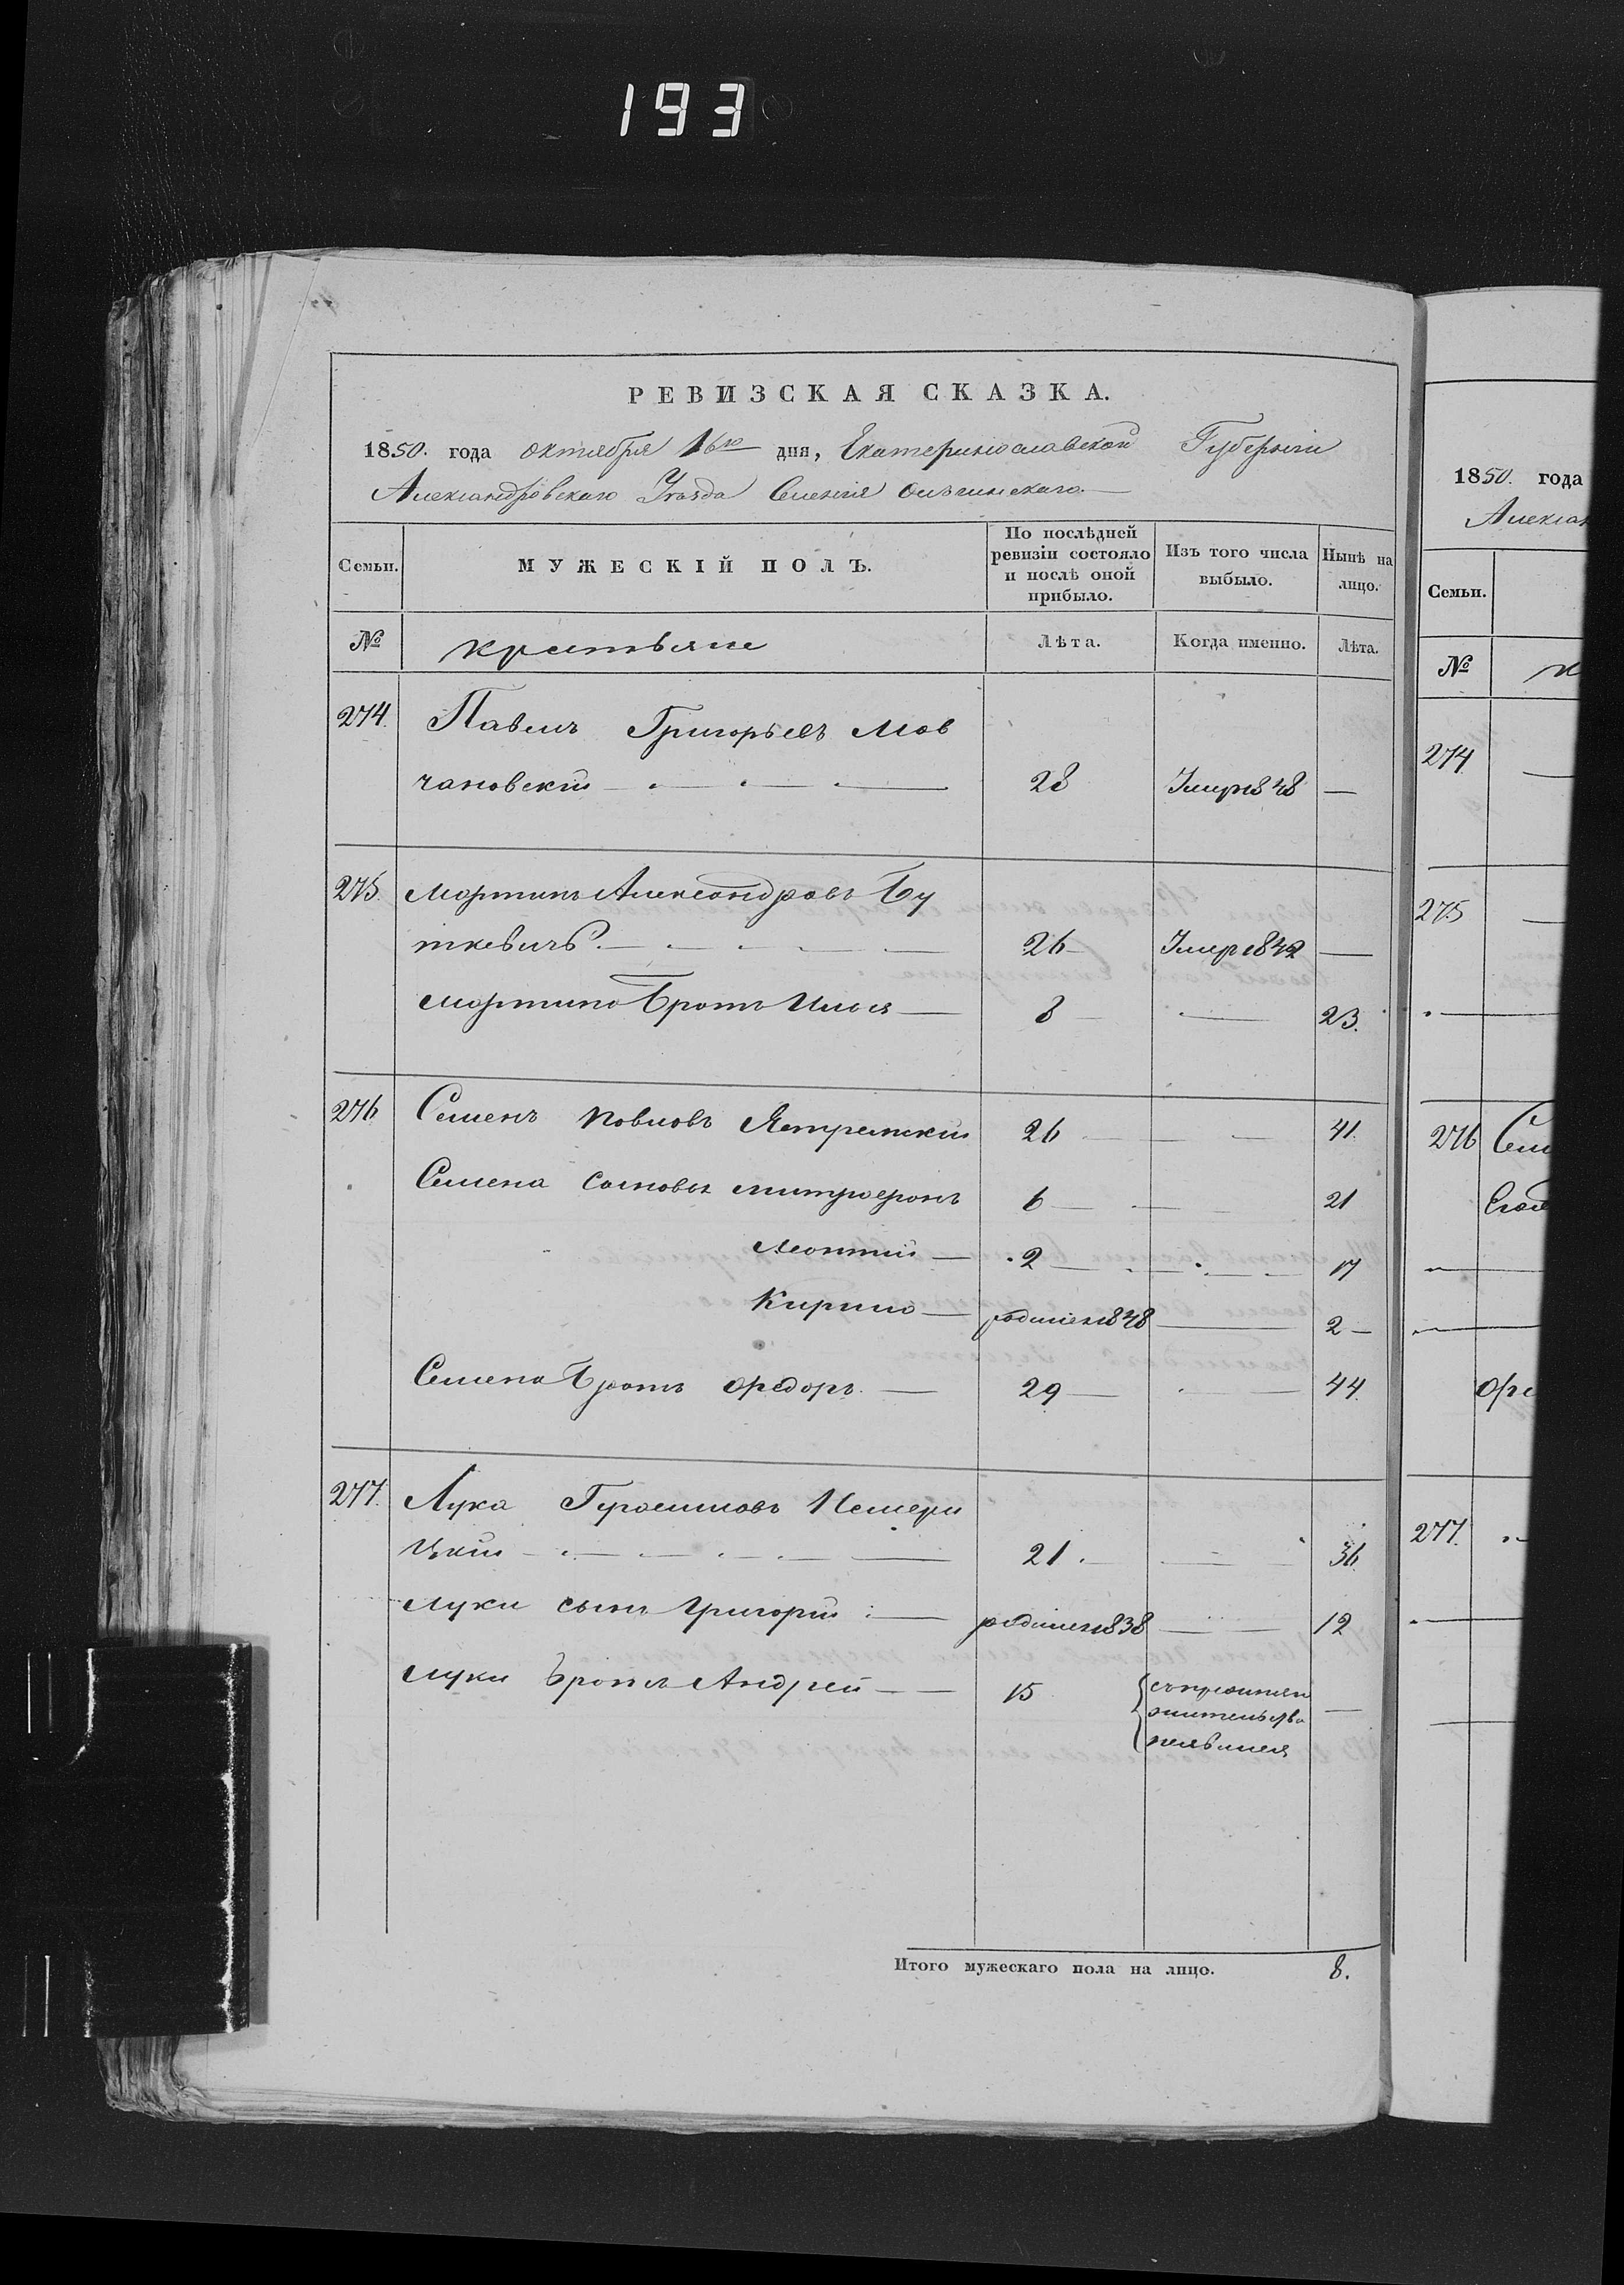 193
РЕВИЗСКАЯ СКАЗКА.
1850. года октября 16го дня, Екатеринославской Губерніи
Александровскаго Уезда Селенія
МУЖЕСКІЙ ПОЛЪ.
Семьи.
По послѣдней ревизіи состояло и послѣ оной прибыло.
Изъ того числа выбыло.
Нынѣ на лицо.
№ крестьяне Лѣта. Когда именно. Лѣта.
274. Павелъ Григорьевъ Мов
чановскій — 28 Умер 1848 —
275. Мартинъ Александровъ Бу
ткевичъ. — 26 — Умер 1842 —
Мартина братъ Илья — 8 — — 23.
276 Семенъ Павловъ Ястремскій 26 — — 41.
Семена сыновья Митрофанъ 6 — — 21
Леонтій — 2 — — 17
Кирило — родился 1848 — 2 —
Семена братъ Федоръ. — 29 — — 44.
277. Лука Гарасимовъ Немери
цкій — 21. — — 36
Луки сынъ Григорій — родился 1838 — 12
Луки братъ Андрей — 15 —
жительства
неявился
Итого мужескаго пола на лицо. 8.
1850. года
Алексан
Семьи.
№ к
274
275
276 Сем
277.